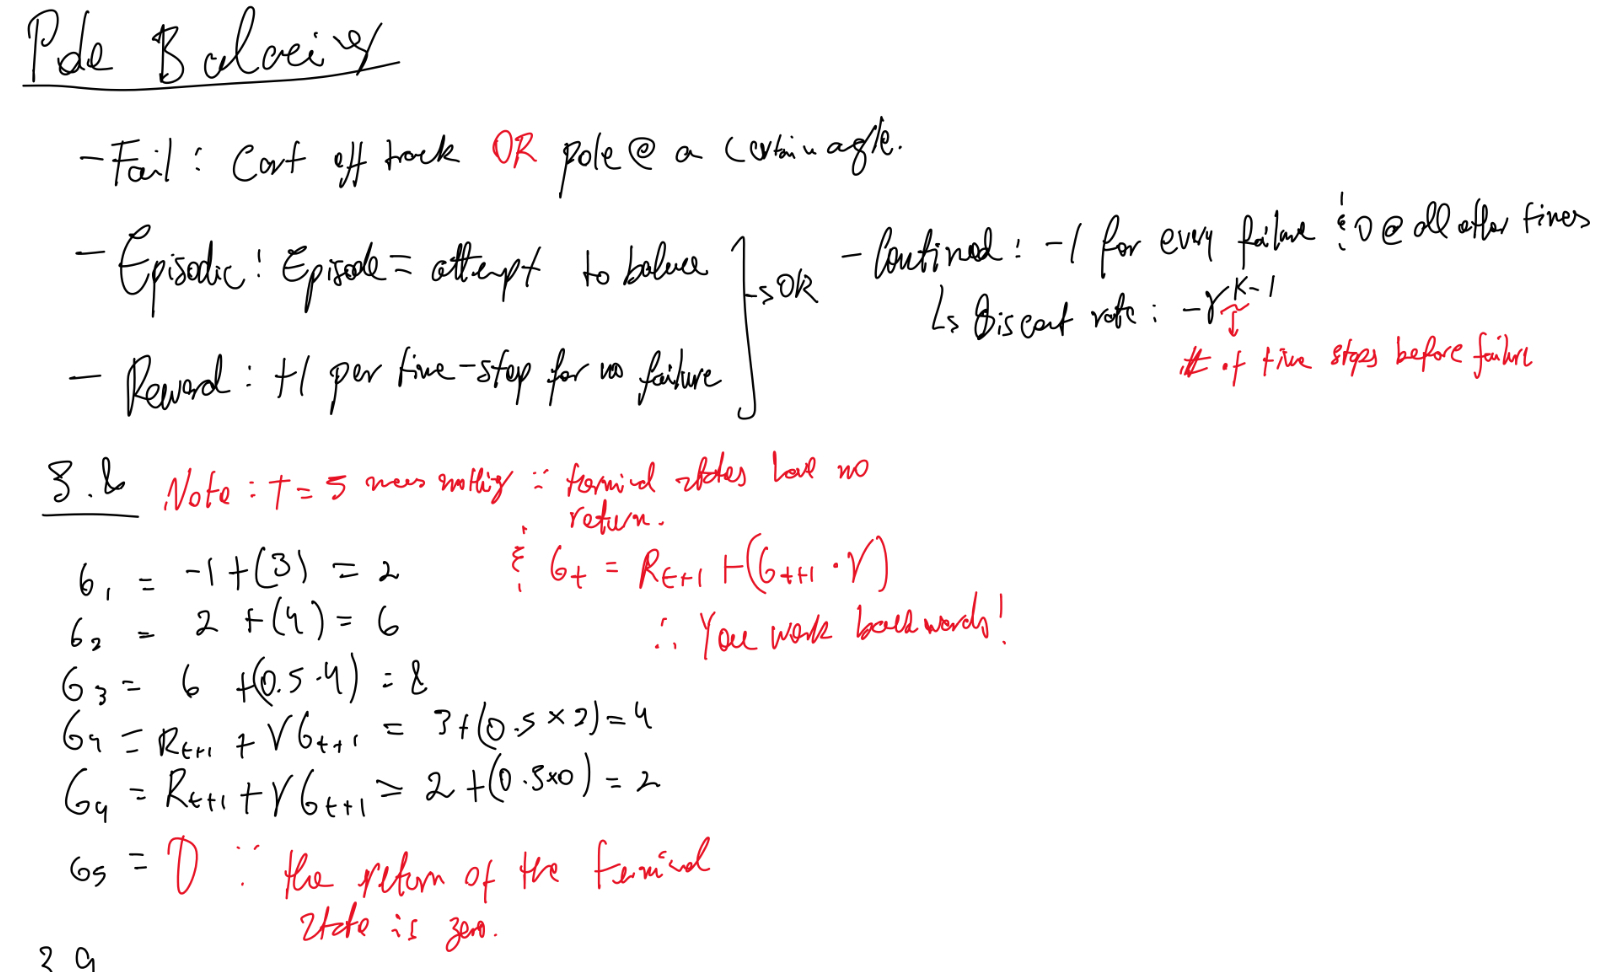 Pole Balacing
- Fail : Cart off track OR pole @ a certain agle.
- Episodic : Episode = attempt to balance
- Reward : +1 per time-step for no failure
↳ OR
- Contined : -1 for every failure & 0 @ all other times
↳ Discout rate : -γ^K-1
# of time steps before failure
3.8 Note : T = 5 means nothing ∵ terminal states have no
return.
& G_t = R_t+1 + (G_t+1 · γ)
∴ You work backwards!
G_1 = -1 + (3) = 2
G_2 = 2 + (4) = 6
G_3 = 6 + (0.5 · 4) = 8
G_4 = R_t+1 + γG_t+1 = 3 + (0.5 × 2) = 4
G_4 = R_t+1 + γG_t+1 = 2 + (0.5 × 0) = 2
G_5 = 0 ∵ the return of the terminal
state is zero.
3.9